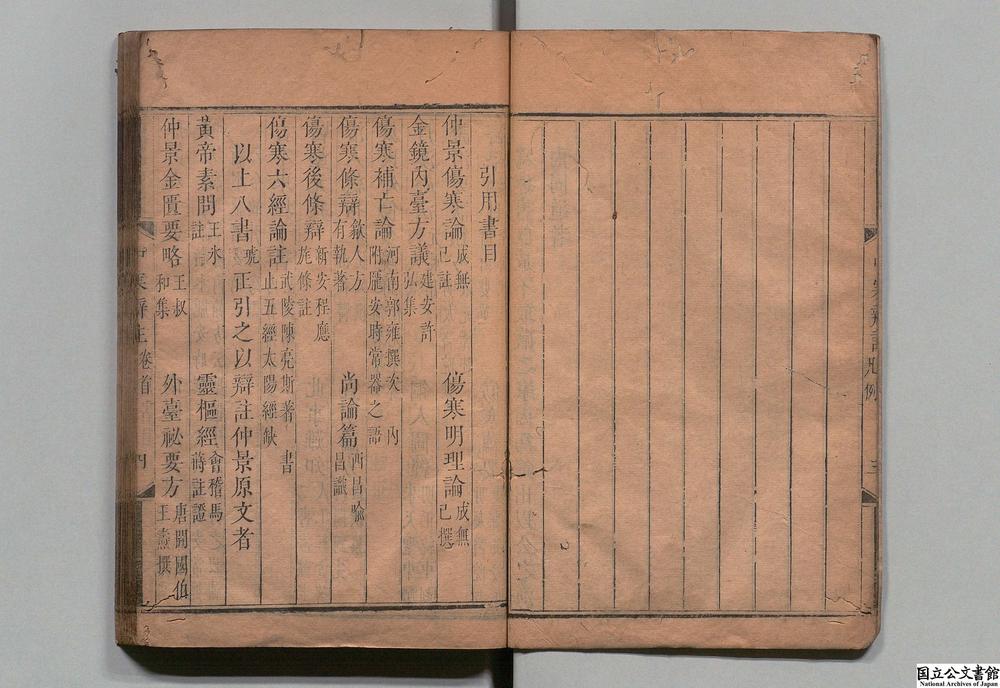 寒辯註凡例 三
引用書目
仲景傷寒論成無己註 傷寒明理論成無己撰
金鏡內臺方議建安許弘集
傷寒補亡論河南郭雍撰次內附龐安時常器之語
傷寒條辯歙人方有執著 尚論篇西昌喻昌識
傷寒後條辯新安程應旄條註
傷寒六經論註武陵陳亮斯著書止五經太陽經缺
以上八書琥正引之以辯註仲景原文者
黃帝素問王氷註 靈樞經會稽馬蒔註證
仲景金匱要略王叔和集 外臺祕要方唐開國伯王燾撰
中寒辯註卷首 四
国立公文書館
National Archives of Japan